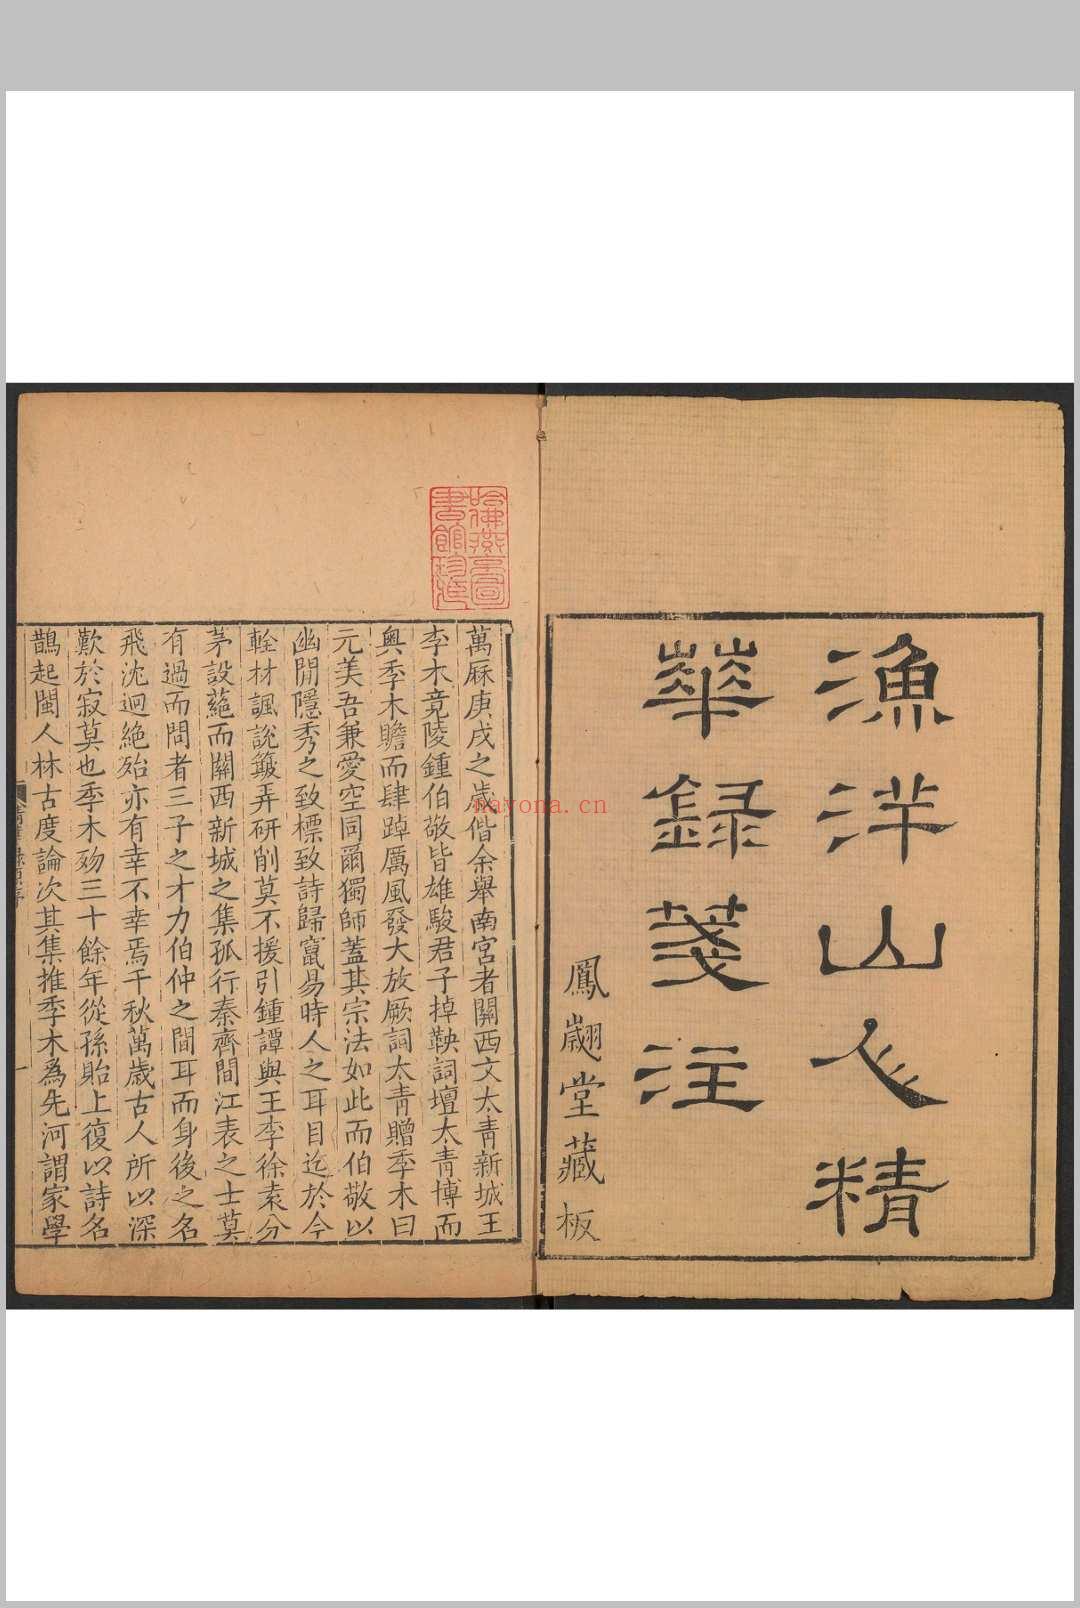 漁洋山人精
華録箋注
鳳翽堂藏板
哈佛燕京圖
書館珍藏
nayona.cn
萬厤庚戌之歳偕余舉南宮者關西文太青新城王
季木竟陵鍾伯敬皆雄駿君子掉鞅詞壇太青博而
奥季木贍而肆踔厲風發大放厥詞太青贈季木曰
元美吾兼愛空同爾獨師蓋其宗法如此而伯敬以
幽閒隱秀之致標致詩歸竄易時人之耳目迄於今
輇材諷說簸弄研削莫不援引鍾譚與王李徐袁分
茅設蕝而關西新城之集孤行秦齊間江表之士莫
有過而問者三子之才力伯仲之間耳而身後之名
飛沈迥絶殆亦有幸不幸焉千秋萬歳古人所以深
歎於寂莫也季木歿三十餘年從孫貽上復以詩名
鵲起閩人林古度論次其集推季木為先河謂家學
一